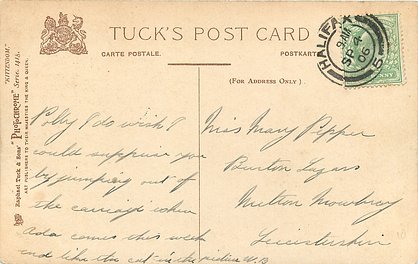 TUCK'S POST CARD
CARTE POSTALE. POSTKART
(FOR ADDRESS ONLY).
"KITTENDOM." Serie. 1415.
Raphael Tuck & Sons' "PHOTOCHROME"
ART PUBLISHERS TO THEIR MAJESTIES THE KING & QUEEN.
HALIFAX
9 AM
SP 4
06
5
Polly I do wish I
could surprise you
by jumping out of
the carriage when
Ada comes this week
end like this cat in the picture
Miss Mary Pepper
Burton Lazars
Melton Mowbray
Leicestershire